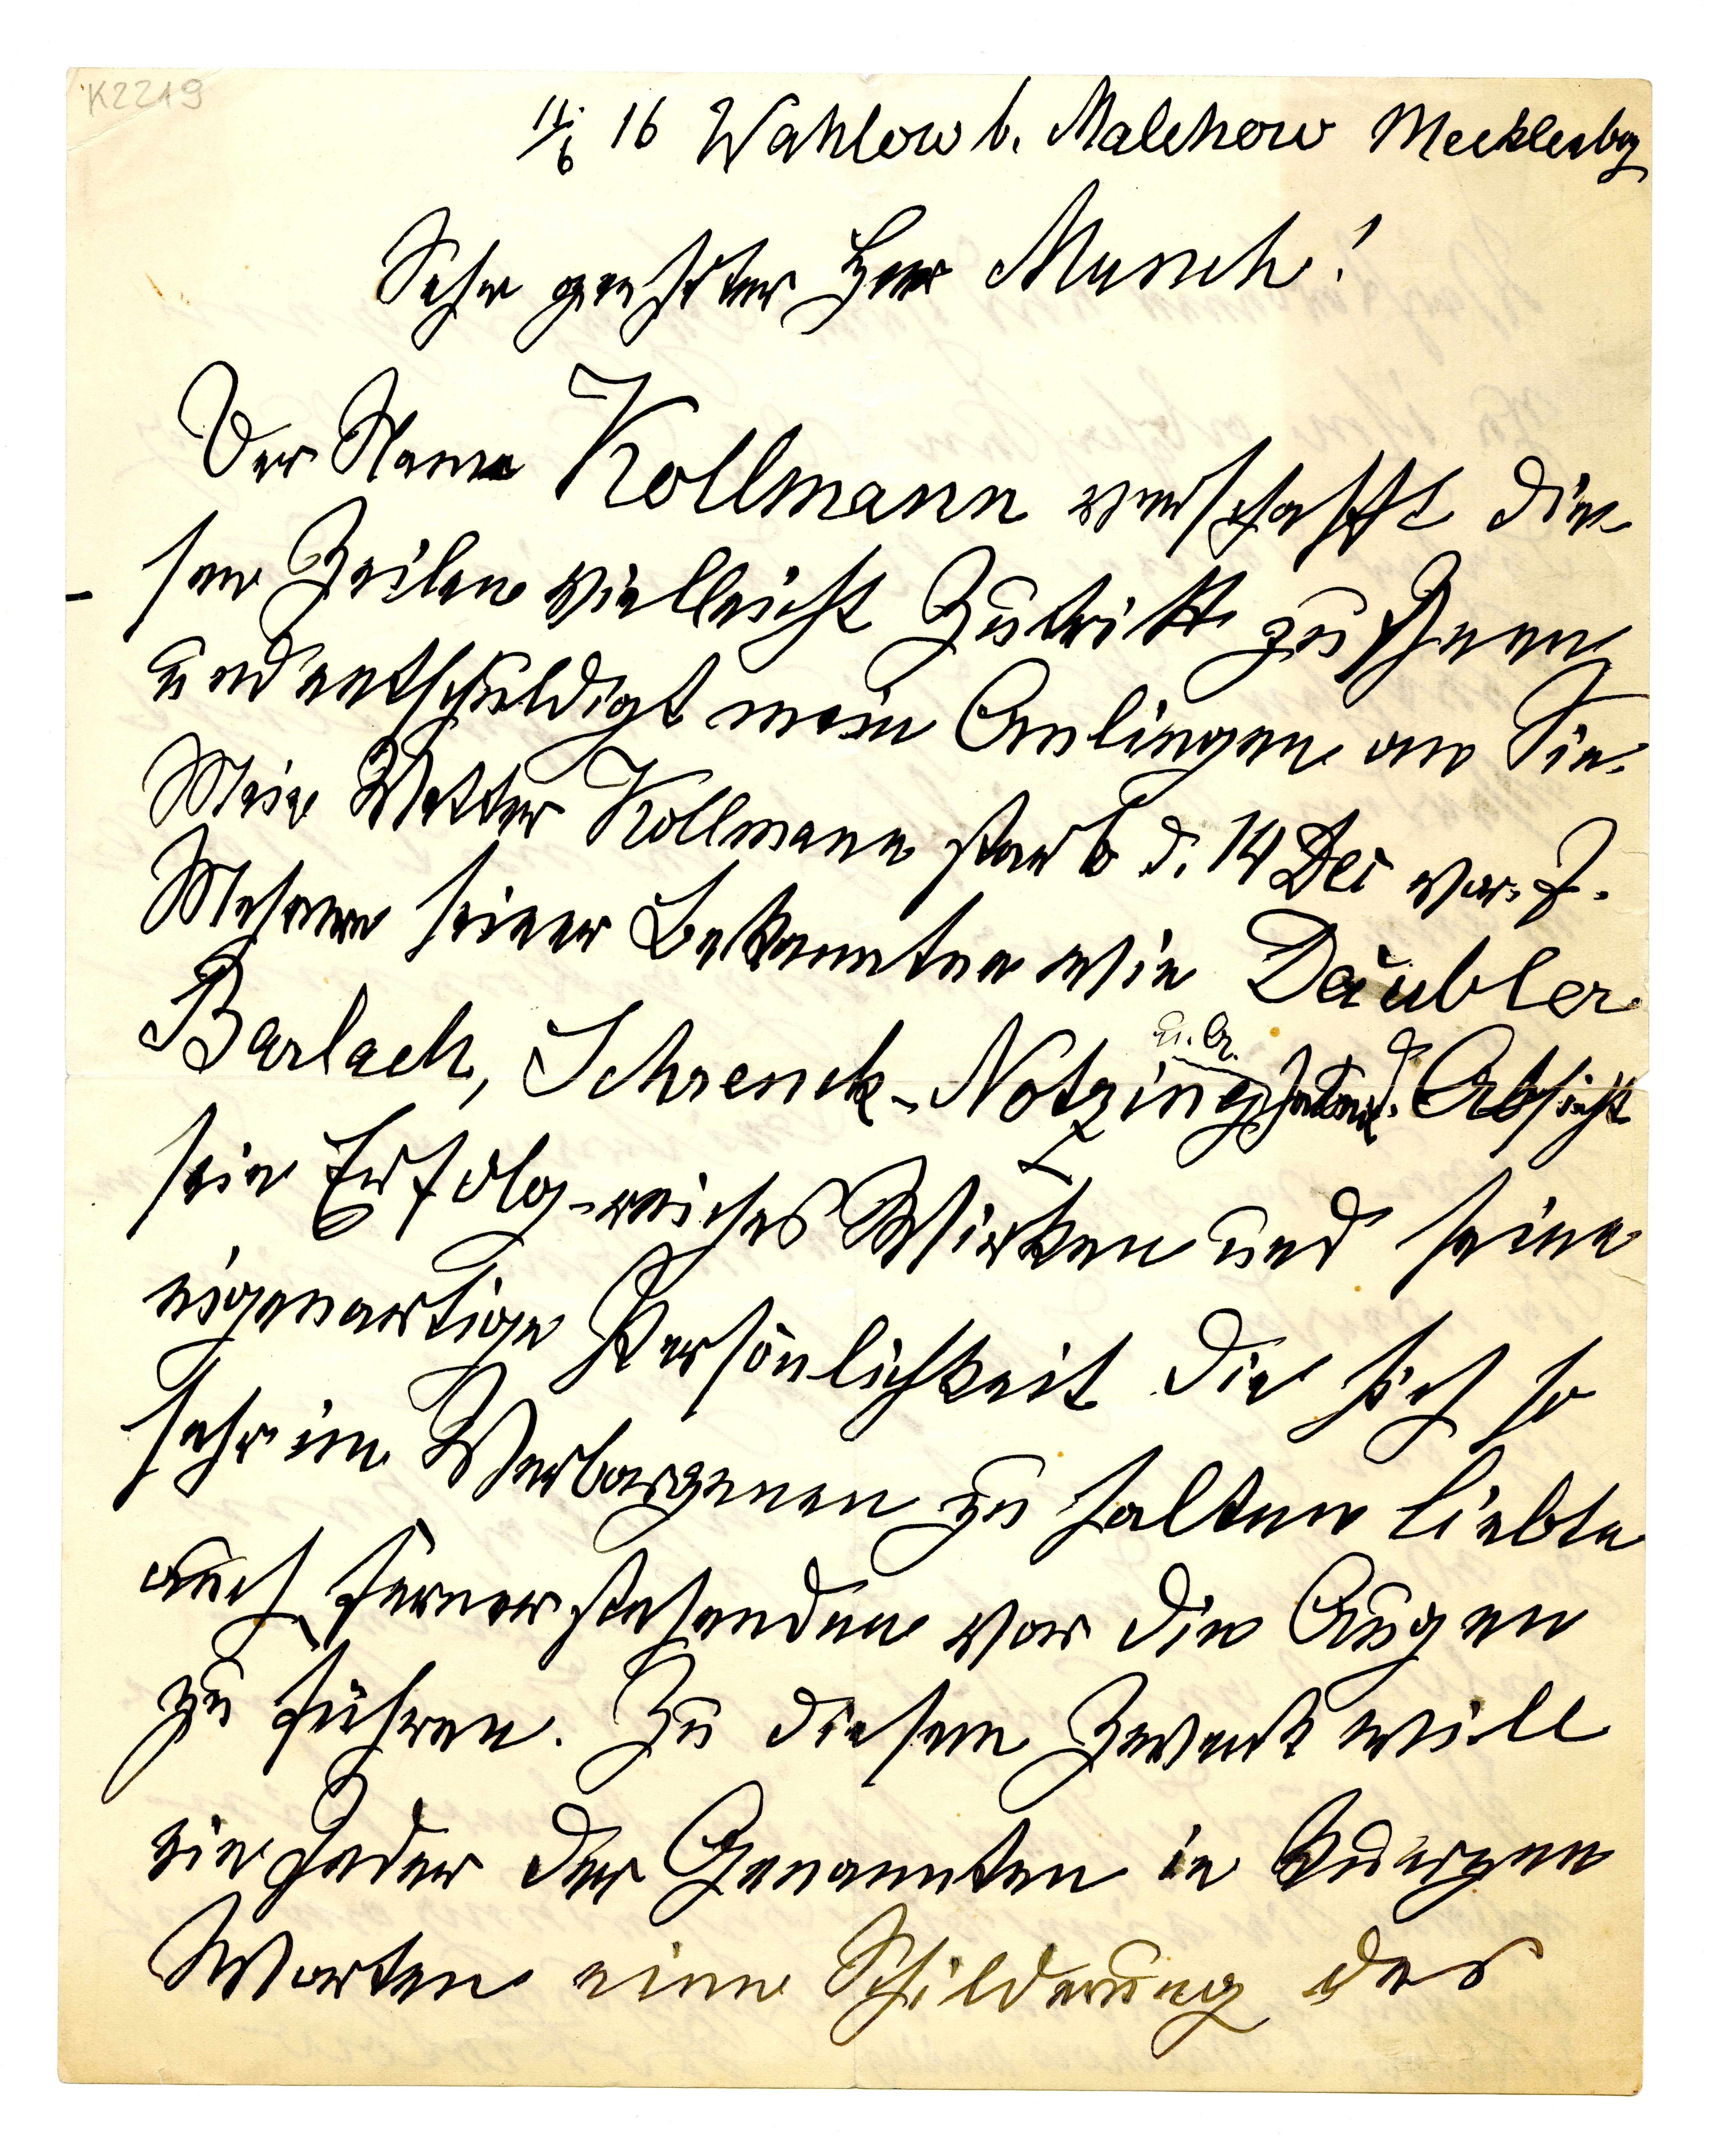 K2219
11/6 16 Wahlow b. Malchow Mecklenbg
Sehr geehrter Herr Munch!
Der Name Kollmann verschafft die-
sen Zeilen vielleicht Zutritt zu Ihnen
und entschuldigt mein Anliegen an Sie.
Mein Vetter Kollmann starb d. 14 Dec vor. J.
Mehrere seiner Bekannten wie Däubler
Barlach, Schrenck-Notzing u. a. haben d. Absicht
sein Erfolg-reiches Wirken und seine
eigenartige Persönlichkeit die sich so
sehr im Verborgenen zu halten liebte
auch fernerstehenden vor die Augen
zu führen. Zu diesem Zweck will
ein Jeder der Genannten in kurzen
Worten eine Schilderung des